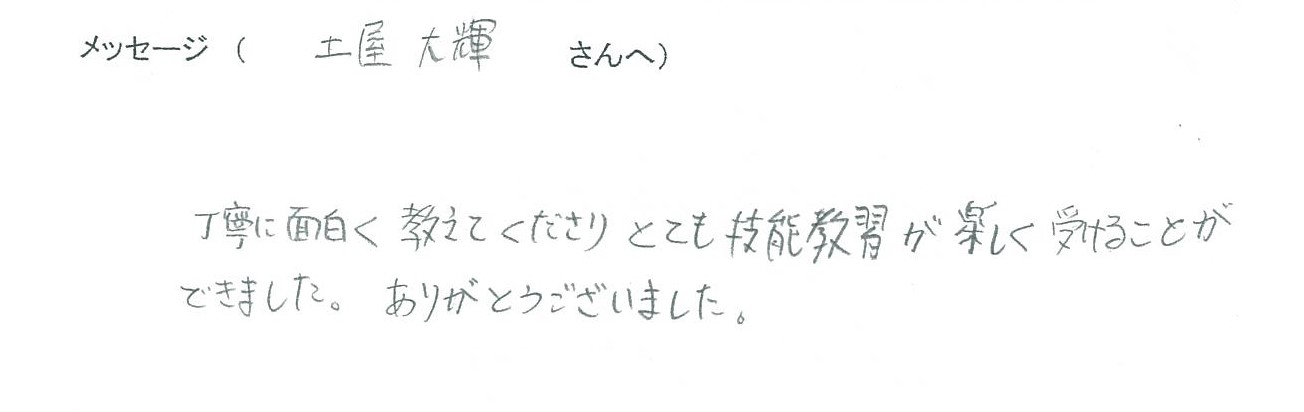 メッセージ（ 土屋 大輝 さんへ）
丁寧に面白く教えてくださりとても技能教習が楽しく受けることが
できました。ありがとうございました。